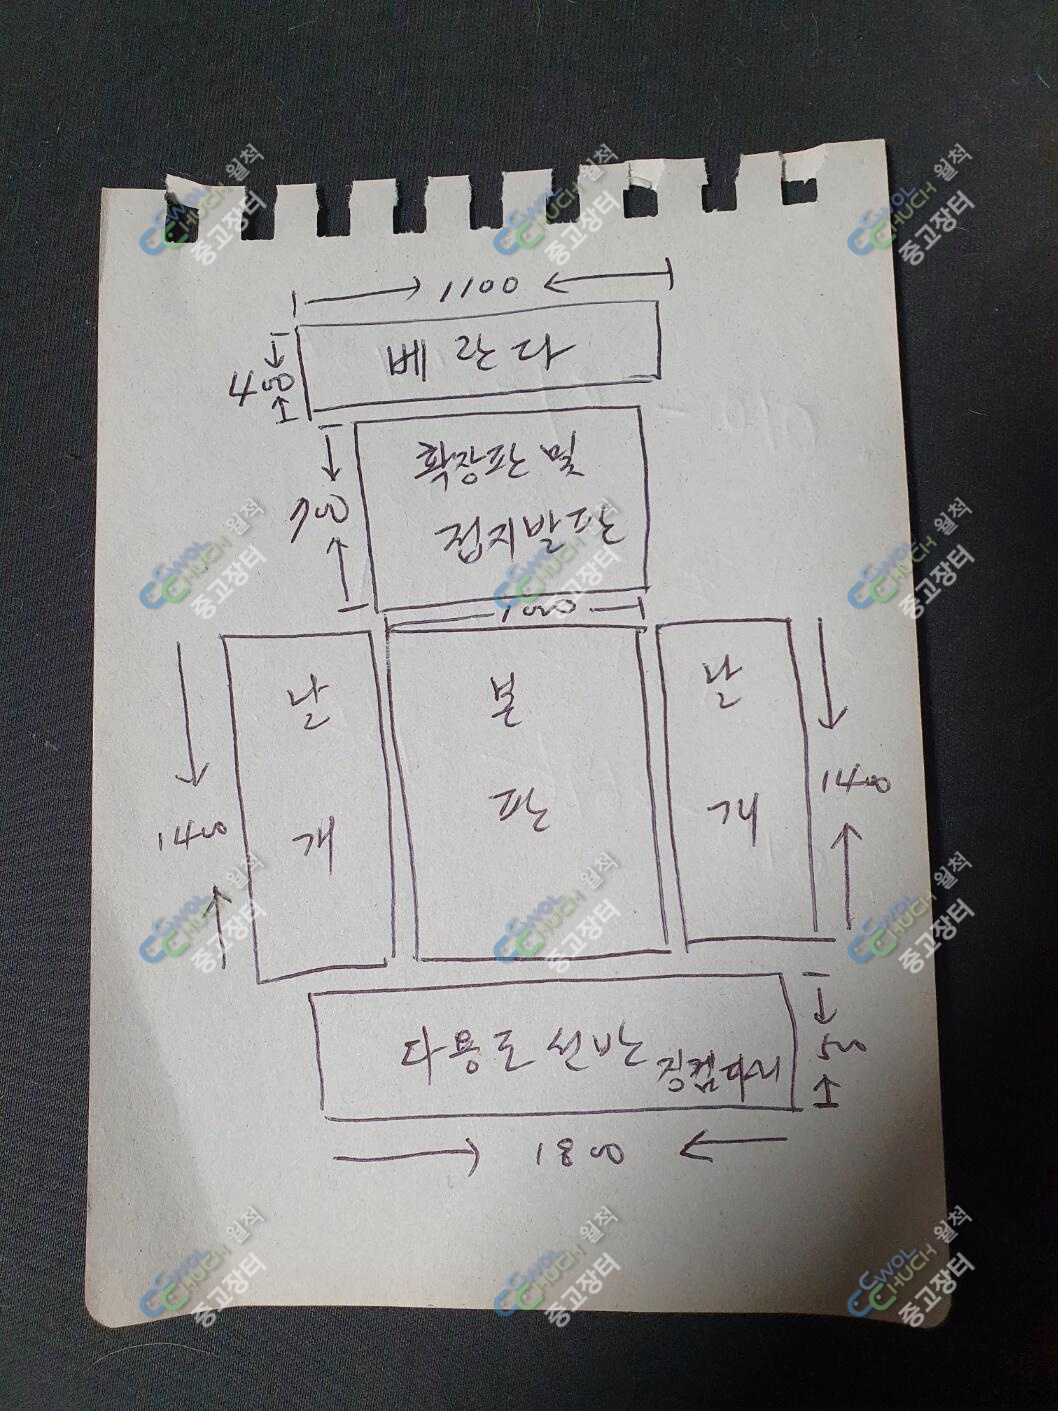 1100
베란다
400
확장판 및
접지발판
700
1000
날
개
본
판
날
개
1400
1400
다용도선반
징검다리
500
1800
CWOL
CHUCH
월척
중고장터